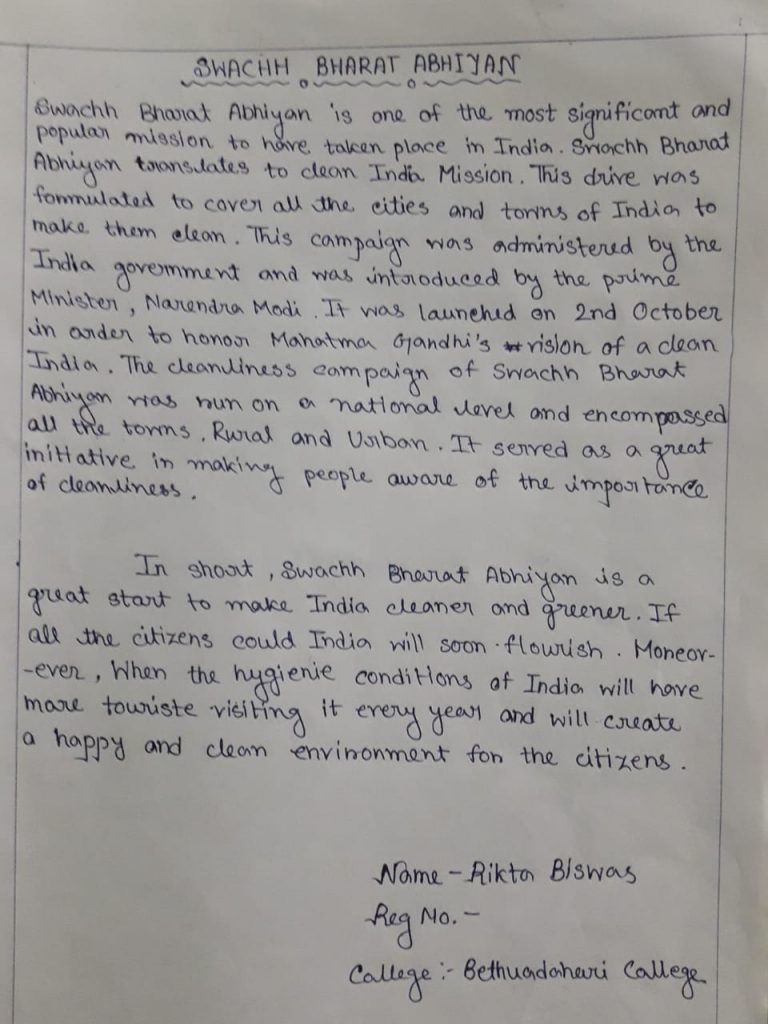 SWACHH BHARAT ABHIYAN
Swachh Bharat Abhiyan is one of the most significant and
popular mission to have taken place in India. Swachh Bharat
Abhiyan translates to clean India Mission. This drive was
formulated to cover all the cities and towns of India to
make them clean. This campaign was administered by the
India government and was introduced by the prime
Minister, Narendra Modi. It was launched on 2nd October
in order to honor Mahatma Gandhi's vision of a clean
India. The cleanliness campaign of Swachh Bharat
Abhiyan was run on a national level and encompassed
all the towns, Rural and Urban. It served as a great
initiative in making people aware of the importance
of cleanliness.
In short, Swachh Bharat Abhiyan is a
great start to make India cleaner and greener. If
all the citizens could India will soon flourish. Moreor-
-ever, When the hygienic conditions of India will have
more touriste visiting it every year and will create
a happy and clean environment for the citizens.
Name - Rikta Biswas
Reg No. -
College :- Bethuadahari College